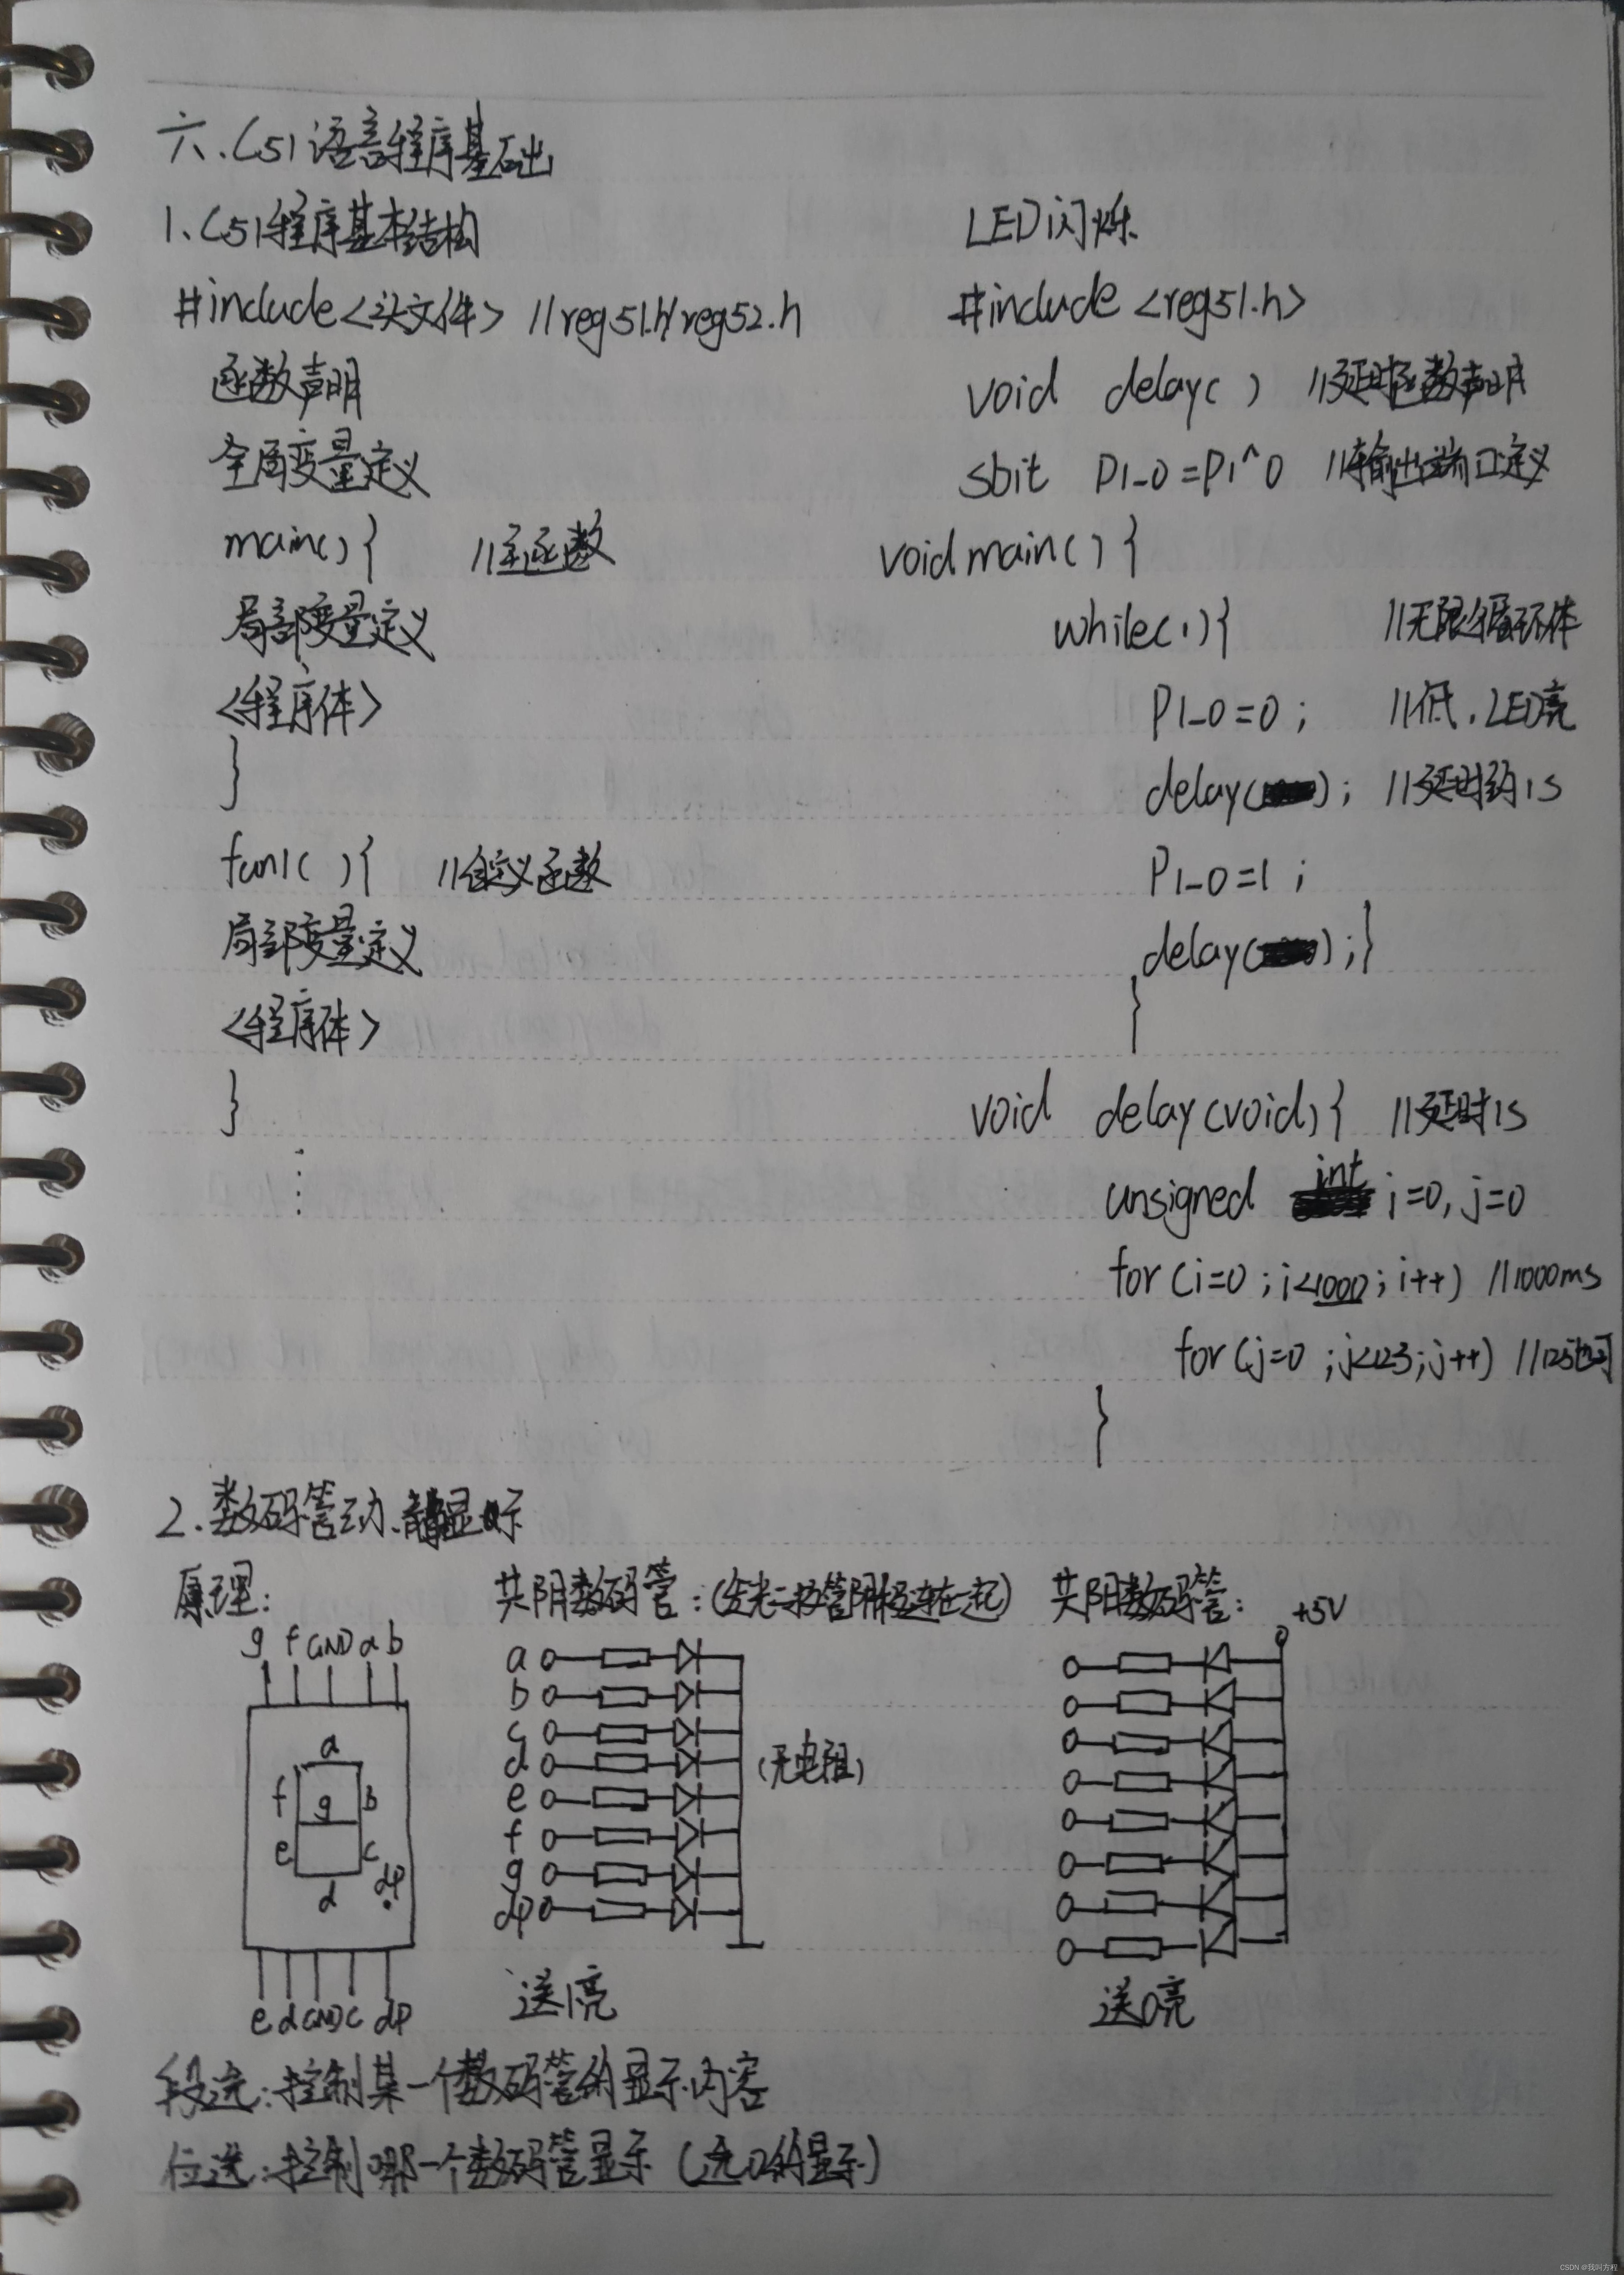 六、C51语言程序基础
1、C51程序基本结构
#include<头文件> //reg51.h/reg52.h
函数声明
全局变量定义
main(){ //主函数
局部变量定义
<程序体>
}
fun1( ){ //自定义函数
局部变量定义
<程序体>
}
⋮
LED闪烁
#include <reg51.h>
void delay( ) //延时函数声明
sbit P1_0=P1^0 //输出端口定义
void main(){
while(1){ //无限循环体
P1_0=0; //低,LED亮
delay( ); //延时约1s
P1_0=1;
delay( );}
}
void delay(void){ //延时1s
unsigned int i=0,j=0
for(i=0;i<1000;i++) //1000ms
for(j=0;j<123;j++) //125也可
}
2.数码管动、静显示
原理:
g f GND a b
a
f g b
e c
d dp
e d GND c dp
共阴数码管:(发光二极管阴极连在一起)
a
b
c
d
e
f
g
dp
(无电阻)
送1亮
共阳数码管:
+5V
送0亮
段选:控制某一个数码管的显示内容
位选:控制哪一个数码管显示(选0的显示)
CSDN @我叫方程